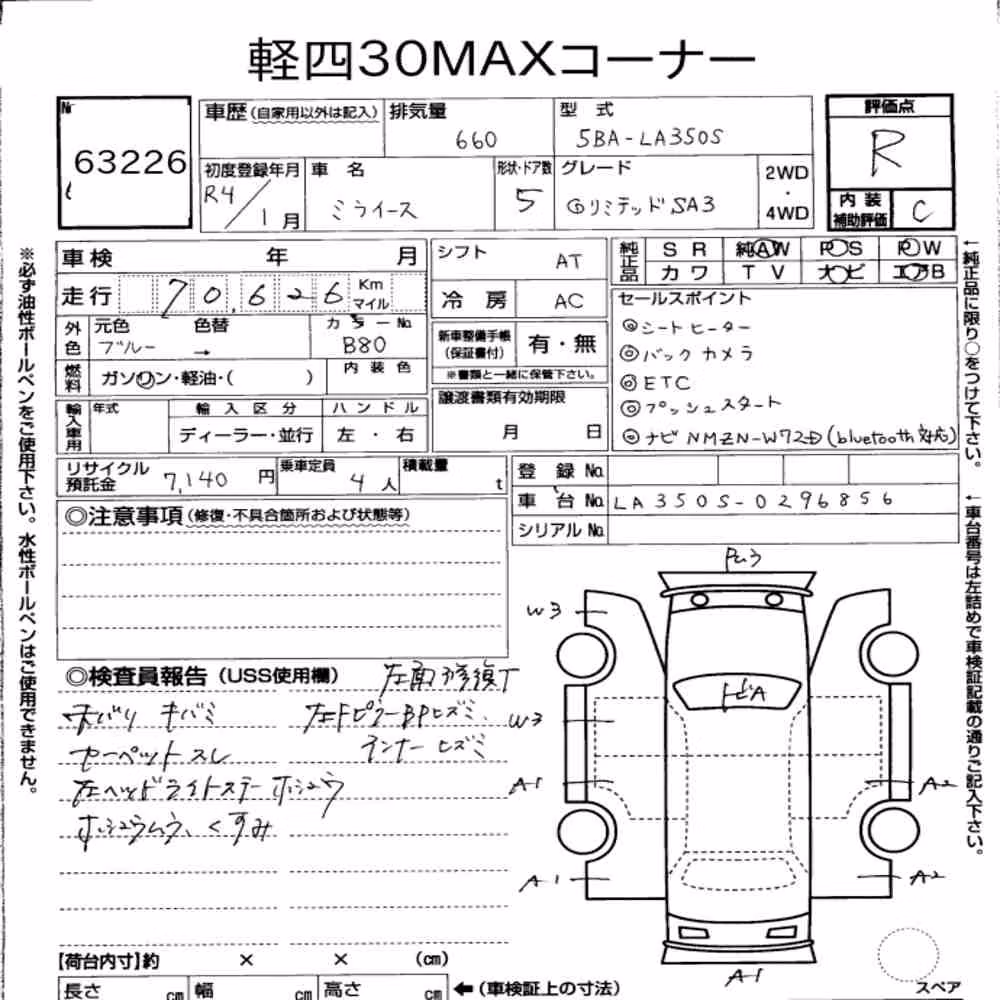 軽四30MAXコーナー
№ 63226
車歴(自家用以外は記入) 排気量 660 型式 5BA-LA350S
評価点 R
初度登録年月 R4/1月 車名 ミライース 形状・ドア数 5 グレード Gリミテッド SA3 2WD・4WD
内装補助評価 C
車検 年 月
シフト AT
純正品 SR 純AW PS PW
カワ TV ナビ エアB
走行 70,626 Km マイル
冷房 AC
セールスポイント
◎シートヒーター
◎バックカメラ
◎ETC
◎プッシュスタート
◎ナビ NMZN-W72D (bluetooth対応)
外色 元色 ブルー 色替 → カラーNo. B80
新車整備手帳(保証書付) 有・無
※書類と一緒に保管下さい。
燃料 ガソリン・軽油・( ) 内装色
譲渡書類有効期限 月 日
輸入車用 年式 輸入区分 ハンドル
ディーラー・並行 左・右
リサイクル預託金 7,140円 乗車定員 4人 積載量 t
登録No.
車台No. LA350S-0296856
シリアルNo.
◎注意事項(修復・不具合箇所および状態等)
◎検査員報告(USS使用欄)
カーペットスレ
インナーヒズミ
くすみ
W3
トビA
W3
A1 A2
A1 A2
A1
スペア
【荷台内寸】約 × × (cm)
長さ cm 幅 cm 高さ cm ←(車検証上の寸法)
※必ず油性ボールペンをご使用下さい。水性ボールペンはご使用できません。
←純正品に限り○をつけて下さい。
←車台番号は左詰めで車検証記載の通りご記入下さい。